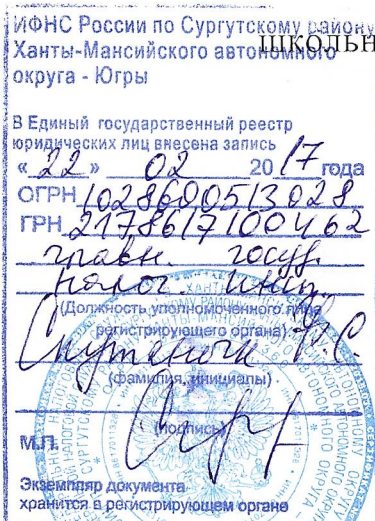 ИФНС России по Сургутскому району
Ханты-Мансийского автономного
ШКОЛЬН
округа - Югры
В Единый государственный реестр
юридических лиц внесена запись
« 22 » 02 20 17 года
ОГРН 1028600513028
ГРН 2178617100462
главн. госуд.
налог. инсп.
(Должность уполномоченного лица
регистрирующего органа)
(фамилия, инициалы)
(подпись)
М.П.
Экземпляр документа
хранится в регистрирующем органе